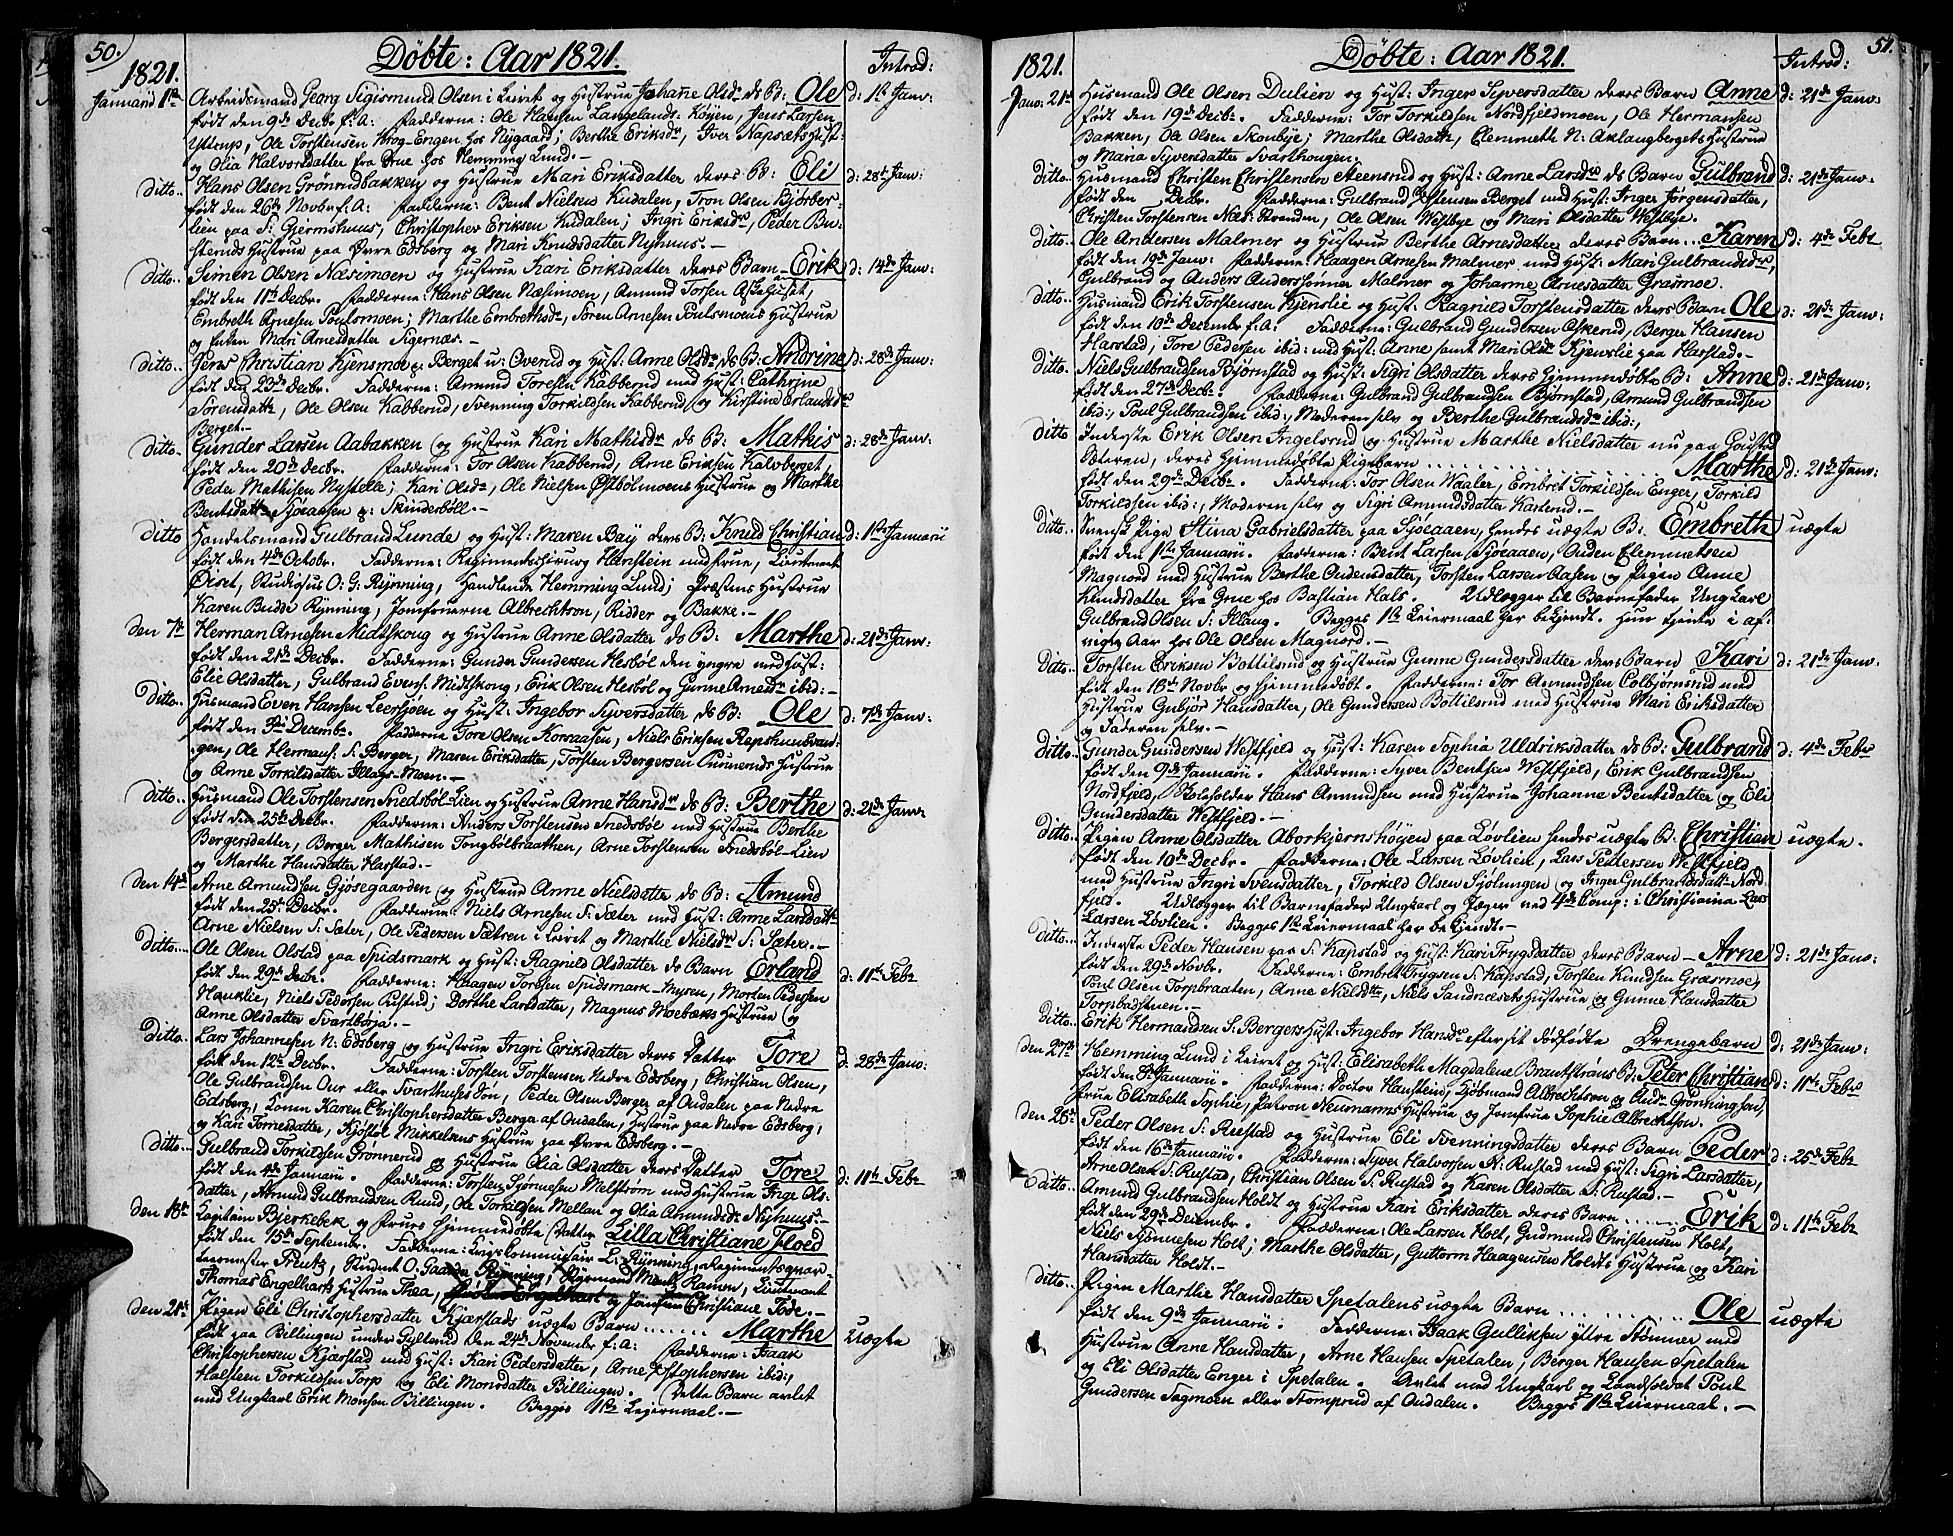 50.
Döbte: Aar 1821.
Introd:
1821.
Januarii 1ste Arbeidsmand Georg Sigismund Olsen i Leiret og Hustrue Johane Olsdr ds B: Ole d: 1ste Janv:
født den 9de Decbr f: A: Fadderne: Ole Hansen Langelands-Köyen, Jens Larsen
Yttrup, Ole Torstensen Krog-Engen hos Nygaard; Berthe Eriksdr, Iver Napsæts Hust:
og Olia Halvorsdatter fra Grue hos Hemming Lund.-
ditto.. Hans Olsen Grönrudbakken og Hustrue Mari Eriksdatter deres B: Oli d: 28de Janv:
født den 26de Novbr f: A: Fadderne: Bent Nielsen Kudalen, Tron Olsen Björber-
lien paa S: Gjermshuus, Christopher Eriksen Kudalen; Ingri Eriksdr, Peder Bu-
steruds Hustrue paa Övre Edsberg og Mari Knudsdatter Nyhuus.-
ditto.. Simen Olsen Næsmoen og Hustrue Kari Eriksdatter deres Barn - Erik d: 14de Janv:
født den 11te Decbr. Fadderne: Hans Olsen Næsmoen, Amund Torsen Askehuset,
Embreth Arnesen Poulsmoen; Marthe Embrethsdr, Sören Arnesen Poulsmoens Hustrue
og Enken Mari Arnesdatter Sigernæs.-
ditto.. Jens Christian Kjensmoe Berget u: Overud og Hust: Anne Olsdr ds B: Andrine d: 28de Janv:
født den 23de Decbr. Fadderne: Amund Toresen Kabberud med Hust: Cathrine
Sörensdattr, Ole Olsen Kabberud, Svenning Torkildsen Kabberud, og Kirstine Erlandsdr
Berget.-
ditto. Gunder Larsen Aabakken og Hustrue Kari Mathisdr ds B: Mathis d: 28de Janv:
født den 20de Decbr. Fadderne: Tor Olsen Kabberud, Arne Eriksen Kalvberget,
Peder Mathisen Nystelle; Kari Olsdr, Ole Nielsen Östbölmoens Hustrue og Marthe
Bentsdattr Sjöeaasen p: Skinderböll.-
ditto Handelsmand Gulbrand Lunde og Hust: Maren Bay deres B: Knud Christian d: 1ste Januarii
født den 4de Octobr. Fadderne: Regimentschirurg Hanstein med frue, Lieutnant
Öiset, Studiosus O: G: Rynning, Handlende Hemming Lund; Præstens Hustrue
Karen Budde Rynning, Jomfruerne Albrechtson, Ridder og Bakke.-
den 7de Herman Arnesen Midtskoug og Hustrue Anne Olsdatter ds B: Marthe d: 21de Janv:
født den 21de Decbr. Fadderne: Gunder Gundersen Hesböl den yngre med Hust:
Elie Olsdatter, Gulbrand Evens. Midtskoug, Erik Olsen Hesböl og Gunne Arnesdr ibid:-
Ditto.. Husmand Even Hansen Leersjöen og Hust: Ingebor Syversdatter ds B: Ole d: 7de Janv:
født den 3die Decembr. Fadderne Tore Olsen Korsaasen, Niels Eriksen Repshuusvan-
gen, Ole Hermans. S: Berger, Maren Eriksdatter, Torsten Bergersen Gunneruds Hustrue
og Anne Torkilsdatter Illags-Moen.-
Ditto.. Husmand Ole Torstensen Snedsböl-Lien og Hustrue Anne Hansdr ds B: Berthe d: 21de Janv:
født den 25de Decbr. Fadderne: Anders Torstensen Snedsböl med Hustrue Berthe
Bergersdatter, Berger Mathisen Tongbölbraathen, Arne Torstensen Snedsböl-Lien
og Marthe Hansdatter Harstad.-
den 14de Arne Amundsen Gjösegaarden og Hustrue Anne Nielsdatter ds B: Amund
født den 25de Decbr. Fadderne: Niels Arnesen S: Sæter med Hust: Anne Larsdattr
Arne Nielsen S: Sæter, Ole Pedersen Sætren i Leiret og Marthe Nielsdr S: Sæter.-
ditto... Ole Olsen Olstad paa Spidsmark og Hust: Ragnild Olsdatter ds Barn Erland d: 11te Febr
født den 29de Decbr. Fadderne: Haagen Toresen Spidsmark-Myren, Morten Pedersen
Hauklie, Niels Pedersen Pusted; Dorthe Larsdatter, Magnus Moebæks Hustrue og
Anne Olsdatter Svartbörja.-
Ditto Lars Johannesen N: Edsberg og Hustrue Ingri Eriksdatter deres Datter Tore d: 28de Janv:
født den 12te Decbr. Fadderne: Torsten Torstensen Nedre Edsberg, Christian Olsen,
Ole Gulbrandsen Our eller Svarthuusdön, Peder Olsen Berger af Oudalen paa Nedre
Edsberg, Konen Karen Christophersdatter Berga af Oudalen, Hustrue paa Nedre Edsberg,
og Kari Tornesdatter, Kjöstöl Mikkelsens Hustrue paa Övre Edsberg.-
Ditto... Gulbrand Torkildsen Grönnerud og Hustrue Olia Olsdatter deres Datter Tore d: 11te Febr
født den 4de Januarii. Fadderne: Torsten Sjönnesen Melström med Hustrue Inge Ols-
datter, Amund Gulbrandsen Ruud, Ole Torkildsen Mellan og Olia Amundsdr Nyhuus.-
den 18de Capitain Bjerkebek og Frues hjemmedöbte Datter Lilla Christiane Floed
født den 15de Septembr. Fadderne: Krigscommissair L: Rynning, Regimentsquar-
teermester Frents, Student O: Rynning, Ramm, Lieutnant
Thomas Engelharts Hustrue Thea, og Jomfrue Christiane Tode.-
den 21de Pigen Eli Christophersdatter Kjærstads uægte Barn ....... Marthe uægte
født paa Billingen under Gylterud den 24de Novembr f: A: Fadderne: Isaak
Christophersen Kjærstad med Hust: Kari Pedersdatter, Arne Xstophersen ibid:,
Halsteen Torkildsen Torp og Eli Monsdatter Billingen. Dette Barn avlet
med Ungkarl Erik Monsen Billingen. Begges 1ste Leiermaal.-
51.
Döbte: Aar 1821.
Introd:
1821.
Janv: 21de Husmand Ole Olsen Dulien og Hust: Inger Syversdatter deres Barn Anne d: 21de Janv:
født den 19de Decbr. Fadderne: Tor Torkildsen Nordfjeldmoen, Ole Hermansen
Bakken, Ole Olsen Skonbye; Marthe Olsdattr, Clemmeth N: Aklangbergets Hustrue
og Maria Syversdatter Svarthougen.
ditto.. Husmand Christen Christensen Steensrud og Hust: Anne Larsdr ds Barn Gulbrand d: 21de Janv:
født den Decbr. Fadderne: Gulbrand Xstensen Berget med Hust: Inger Jörgensdatter,
Christen Torstensen Næs-Strenden, Ole Olsen Westbye og Mari Olsdatter Westbye.
ditto.. Ole Andersen Malmer og Hustrue Berthe Arnesdatter deres Barn... Karen d: 4de Febr
født den 19de Janv: Fadderne: Haagen Arnesen Malmer med Hust: Mari Gulbrandsdr,
Gulbrand og Anders Anderssönner Malmer og Johanne Arnesdatter Grasmoe.
ditto.. Husmand Erik Torstensen Kjenslie og Hust: Ragnild Torstensdatter deres Barn Ole d: 21de Janv:
født den 10de Decembr f: A: Fadderne: Gulbrand Gundersen Askerud, Berger Hansen
Harstad, Tore Pedersen ibid: med Hust: Anne samt Mari Olsdr Kjenslie paa Harstad.-
ditto. Niels Gulbrandsen Björnstad og Hust: Sigri Olsdatter deres hjemmedöbte B: Anne d: 21de Janv:
født den 27de Decbr. Fadderne: Gulbrand Gulbrandsen Björnstad, Amund Gulbrandsen
ibid:, Poul Gulbrandsen ibid:, Moderen selv og Berthe Gulbrandsdr ibid:,
ditto Inderste Erik Olsen Ingelsrud og Hustrue Marthe Nielsdatter nu paa Goustad
Sæteren, deres hjemmedöbte Pigebarn .................. Marthe d: 21de Janv:
født den 29de Decbr. Fadderne: Tor Olsen Waaler, Embret Torkildsen Enger, Torkild
Torkildsen ibid:, Moderen selv og Sigri Amundsdatter Karterud.-
ditto.. Svensk Pige Stina Gabrielsdatter paa Sjöeaaen, hendes uægte B: Embreth uægte
født den 1ste Januarii. Fadderne: Bent Larsen Sjöeaaen, Ouden Clemmetsen
Magnord med Hustrue Berthe Oudensdatter, Torsten Larsen Aasen og Pigen Anne
Knudsdatter fra Grue hos Bastian Hals. Udlægger til Barnefader Ungkarl
Gulbrand Olsen S: Illaug. Begges 1ste Leiermaal her bekjendt. Hun tjente i af-
vigte Aar hos Ole Olsen Magnord.-
Ditto.. Torsten Eriksen Bottilsrud og Hustrue Gunne Gundersdatter deres Barn Kari d: 21de Janv:
født den 18de Novbr og hjemmedöbt. Fadderne: Tor Amundsen Colbjörnsrud med
Hustrue Gubjör Hansdatter, Ole Gundersen Bottilsrud med Hustrue Mari Eriksdatter
og Faderen selv.-
ditto. Gunder Gundersen Westfjeld og Hust: Karen Sophia Uldriksdatter ds B: Gulbrand d: 4de Febr
født den 9de Januarii. Fadderne: Syver Bentsen Westfjeld, Erik Gulbrandsen
Nordfjeld, Skoleholder Hans Amundsen med Hustrue Johanne Bentsdatter og Eli
Gundersdatter Westfjeld.-
ditto.. Pigen Anne Olsdatter Aborkjernshöyen paa Lövlien hendes uægte B: Christian uægte.
født den 10de Decbr. Fadderne: Ole Larsen Lövlien, Lars Pedersen Westfjeld
med Hustrue Ingri Svensdatter, Torkild Olsen Sjölungen og Inger Gulbrandsdattr Nord-
fjeld. Udlægger til Barnefader Ungkarl og Jæger ved 4de Comp: i Christiania Lars
Larsen Lövlien. Begges 1ste Leiermaal her bekjendt.-
Ditto.. Inderste Peder Hansen paa S: Kapstad og Hust: Kari Trygsdatter deres Barn - Arne d: 21de Janv:
født den 29de Novbr. Fadderne: Embret Trygsen S: Kapstad, Torsten Knudsen Græsmoe,
Poul Olsen Torpbraaten, Anne Nielsdtr, Niels Sandnæsets Hustrue og Gunne Hansdatter
Torpbadstuen.-
Ditto.. Erik Hermandsen S: Bergers Hust: Ingebor Hansdr efter sit dödfödte Drengebarn d: 21de Janv:
den 27de Hemming Lund i Leiret og Hust: Elisabeth Magdalene Brantströms B: Peter Christian d: 11te Febr
født den 8de Januarii. Fadderne: Doctor Hanstein, Kjöbmand Albrechtson og And: Grönning hos,
Frue Elisabeth Sophie, Patron Neumanns Hustrue og Jomfrue Sophie Albrechtson.
den 28de Peder Olsen S: Rustad og Hustrue Eli Svenningsdatter deres Barn Peder d: 25de Febr
født den 16de Januarii. Fadderne: Syver Halvorsen N: Rustad med Hust: Sigri Larsdatter,
Arne Olsen S: Rustad, Christian Olsen S: Rustad og Karen Olsdatter S: Rustad.-
Ditto.. Amund Gulbrandsen Holdt og Hustrue Kari Eriksdatter deres Barn ...... Erik d: 11te Febr
født den 29de Decembr. Fadderne: Ole Larsen Holt, Gudmund Christensen Holt,
Niels Sjönnesen Holt; Marthe Olsdatter, Guttorm Haagensen Holdts Hustrue og Kari
Hansdatter Holdt.-
Ditto.. Pigen Marthe Hansdatter Spetalens uægte Barn ............ Ole uægte
født den 9de Januarii. Fadderne: Isaak Gulliksen yttre Stömner med
Hustrue Anne Hansdatter, Arne Hansen Spetalen, Berger Hansen Spetalen
og Eli Olsdatter Enger i Spetalen. Avlet med Ungkarl og Landsoldat Poul
Gundersen Sagmoen eller Stomprud af Oudalen. Begges 1ste Leiermaal.-